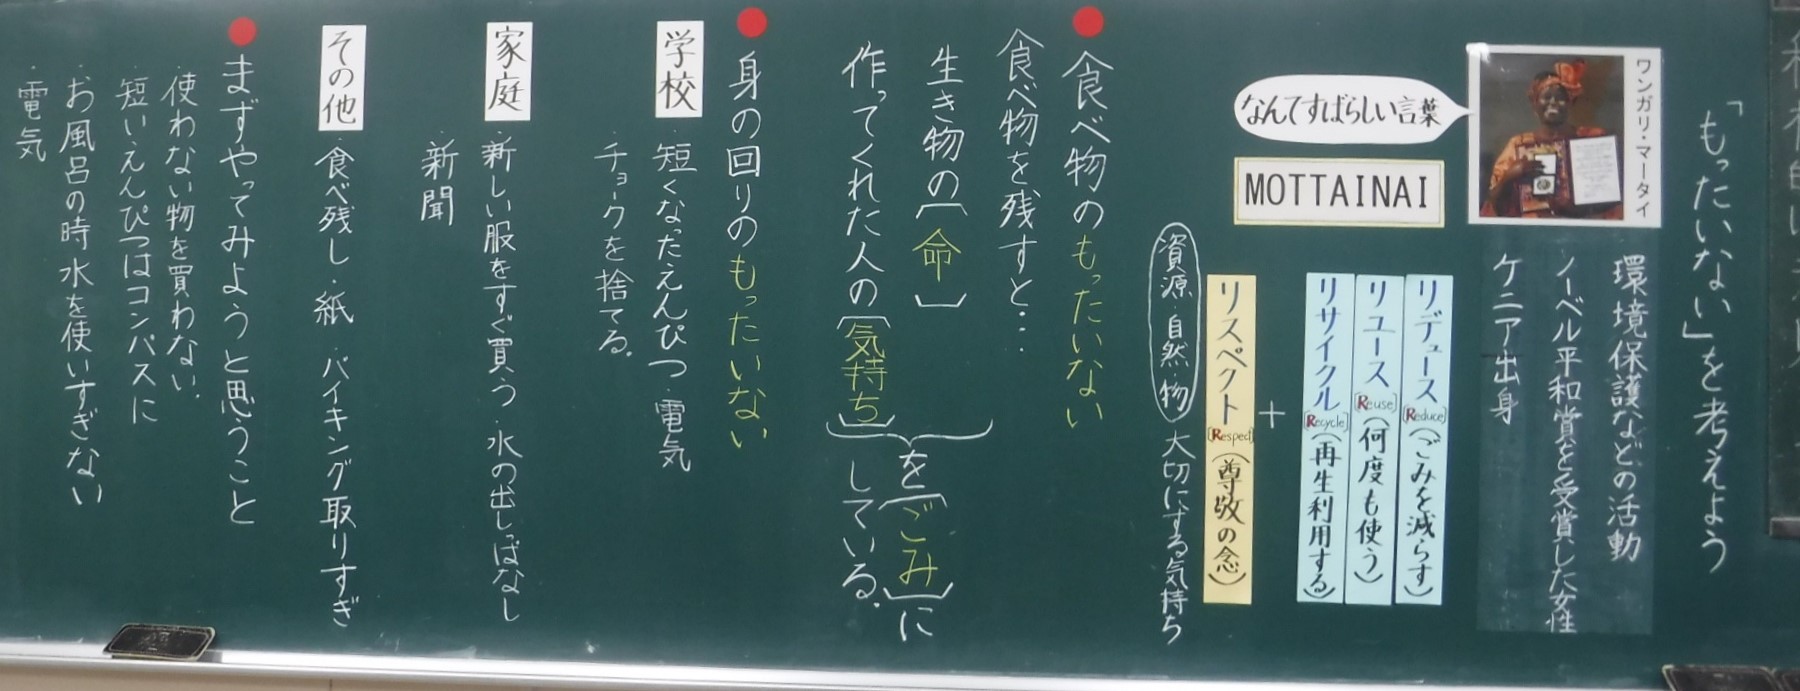 「もったいない」を考えよう
ワンガリ・マータイ
環境保護などの活動
ノーベル平和賞を受賞した女性
ケニア出身
なんてすばらしい言葉
MOTTAINAI
リデュース[Reduce](ごみを減らす)
リユース[Reuse](何度も使う)
リサイクル[Recycle](再生利用する)
+
リスペクト[Respect](尊敬の念)
資源・自然・物 大切にする気持ち
食べ物のもったいない
食べ物を残すと…
生き物の[命]
作ってくれた人の[気持ち]
を[ごみ]に
している。
身の回りのもったいない
学校
・短くなったえんぴつ・電気
・チョークを捨てる。
家庭
・新しい服をすぐ買う・水の出しっぱなし
・新聞
その他
・食べ残し・紙・バイキング取りすぎ
まずやってみようと思うこと
・使わない物を買わない。
・短いえんぴつはコンパスに
・お風呂の時水を使いすぎない
・電気